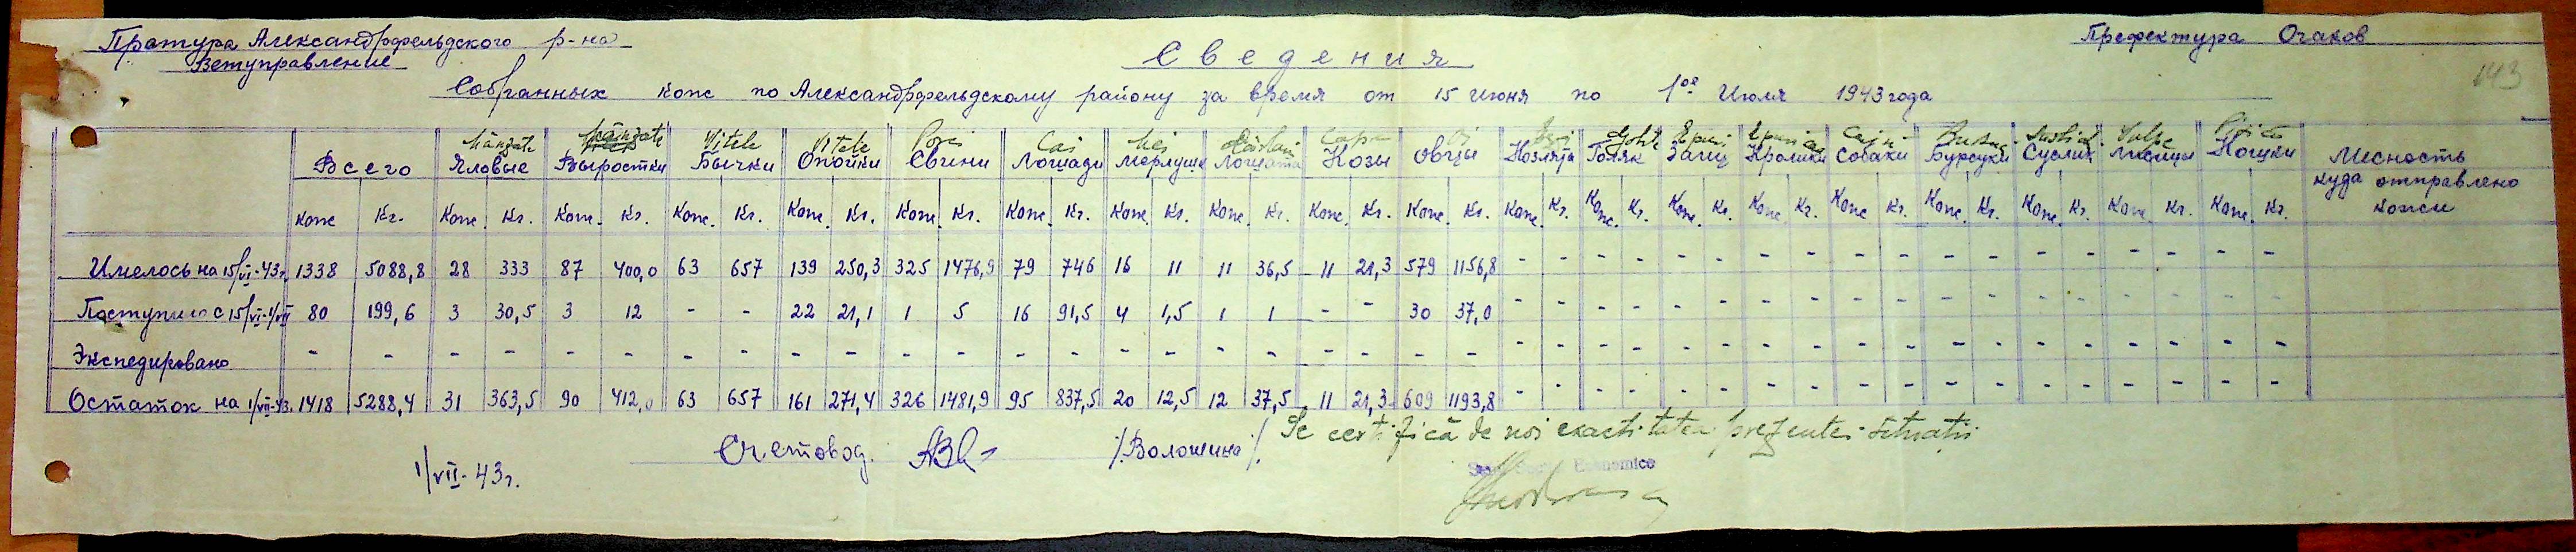 Претура Александрфельдского р-на
Ветуправление
Префектура Очаков
143
Сведения
Собранных кож по Александрфельдскому району за время от 15 июня по 1ое Июля 1943 года
Mânzate Mânzate Vitele Vitele Porci Cai Miei Cârlani Capre Oi Iezi Iepuri Câini Vulpe Pisica
Всего Яловые Выростки Бычки Опойки Свиньи Лошади Мерлуше Лошата Козы Овцы Козлята Голяк Заяц Кролики Собаки Бурсуки Суслик Лисицы Кошки Месность
куда отправлено
кожи
Кож Кг. Кож. Кг. Кож. Кг. Кож. Кг. Кож. Кг. Кож. Кг. Кож. Кг. Кож. Кг. Кож. Кг. Кож. Кг. Кож. Кг. Кож. Кг. Кож. Кг. Кож. Кг. Кож. Кг. Кож Кг. Кож. Кг. Кож. Кг. Кож. Кг. Кож. Кг.
Имелось на 15/VI-43г. 1338 5088,8 28 333 87 400,0 63 657 139 250,3 325 1476,9 79 746 16 11 11 36,5 11 21,3 579 1156,8 - - - - - - - - - - - - - - - - - -
Поступило с 15/VI-1/VII 80 199,6 3 30,5 3 12 - - 22 21,1 1 5 16 91,5 4 1,5 1 1 - - 30 37,0 - - - - - - - - - - - - - - - - - -
Экспедировано - - - - - - - - - - - - - - - - - - - - - - - - - - - - - - - - - - - - - - - -
Остаток на 1/VII-43. 1418 5288,4 31 363,5 90 412,0 63 657 161 271,4 326 1481,9 95 837,5 20 12,5 12 37,5 11 21,3 609 1193,8 - - - - - - - - - - - - - - - - - -
Se certifică de noi exactitatea prezentei situații
Счетовод. /Волошина/
Economice
1/VII-43г.